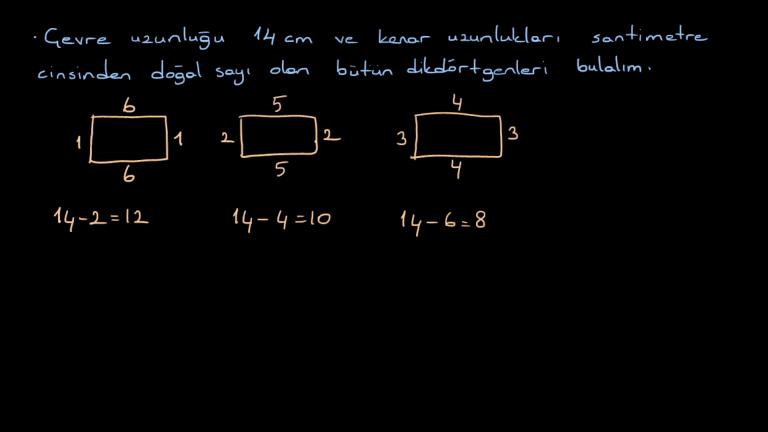 · Çevre uzunluğu 14 cm ve kenar uzunlukları santimetre
cinsinden doğal sayı olan bütün dikdörtgenleri bulalım.
6 5 4
1 1 2 2 3 3
6 5 4
14-2=12 14-4=10 14-6=8